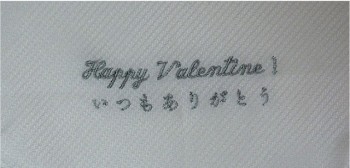 Happy Valentine!
いつもありがとう